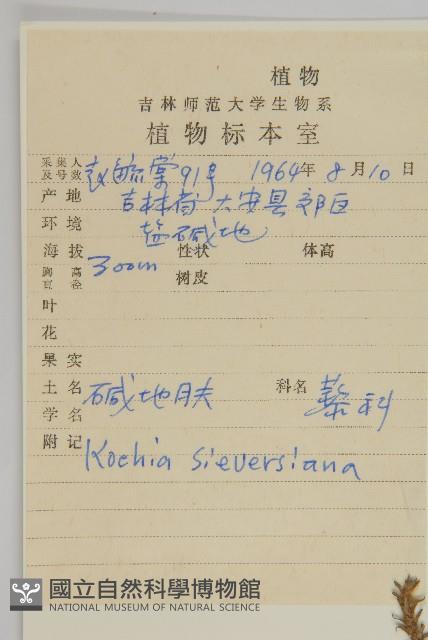 植物
吉林师范大学生物系
植物标本室
采集人及号数 赵毓棠 91号 1964年 8月10日
产地 吉林省大安县郊区
环境 盐碱地
海拔 300m 性状 体高
胸高直径 树皮
叶
花
果实
土名 碱地肤 科名 藜科
学名
附记 Kochia sieversiana
國立自然科學博物館
NATIONAL MUSEUM OF NATURAL SCIENCE